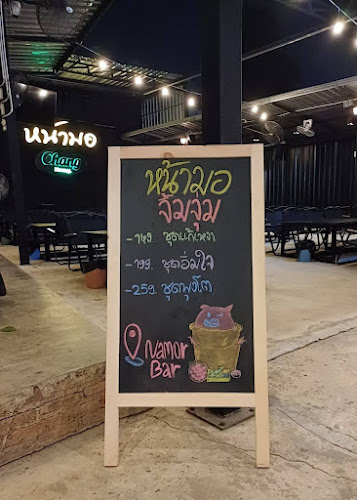 หน้ามอ
Chang
หน้ามอ
จิ้มจุ่ม
-149. ชุดแก้เหงา
-199. ชุดอิ่มใจ
-259. ชุดพุงโต
Namor
Bar